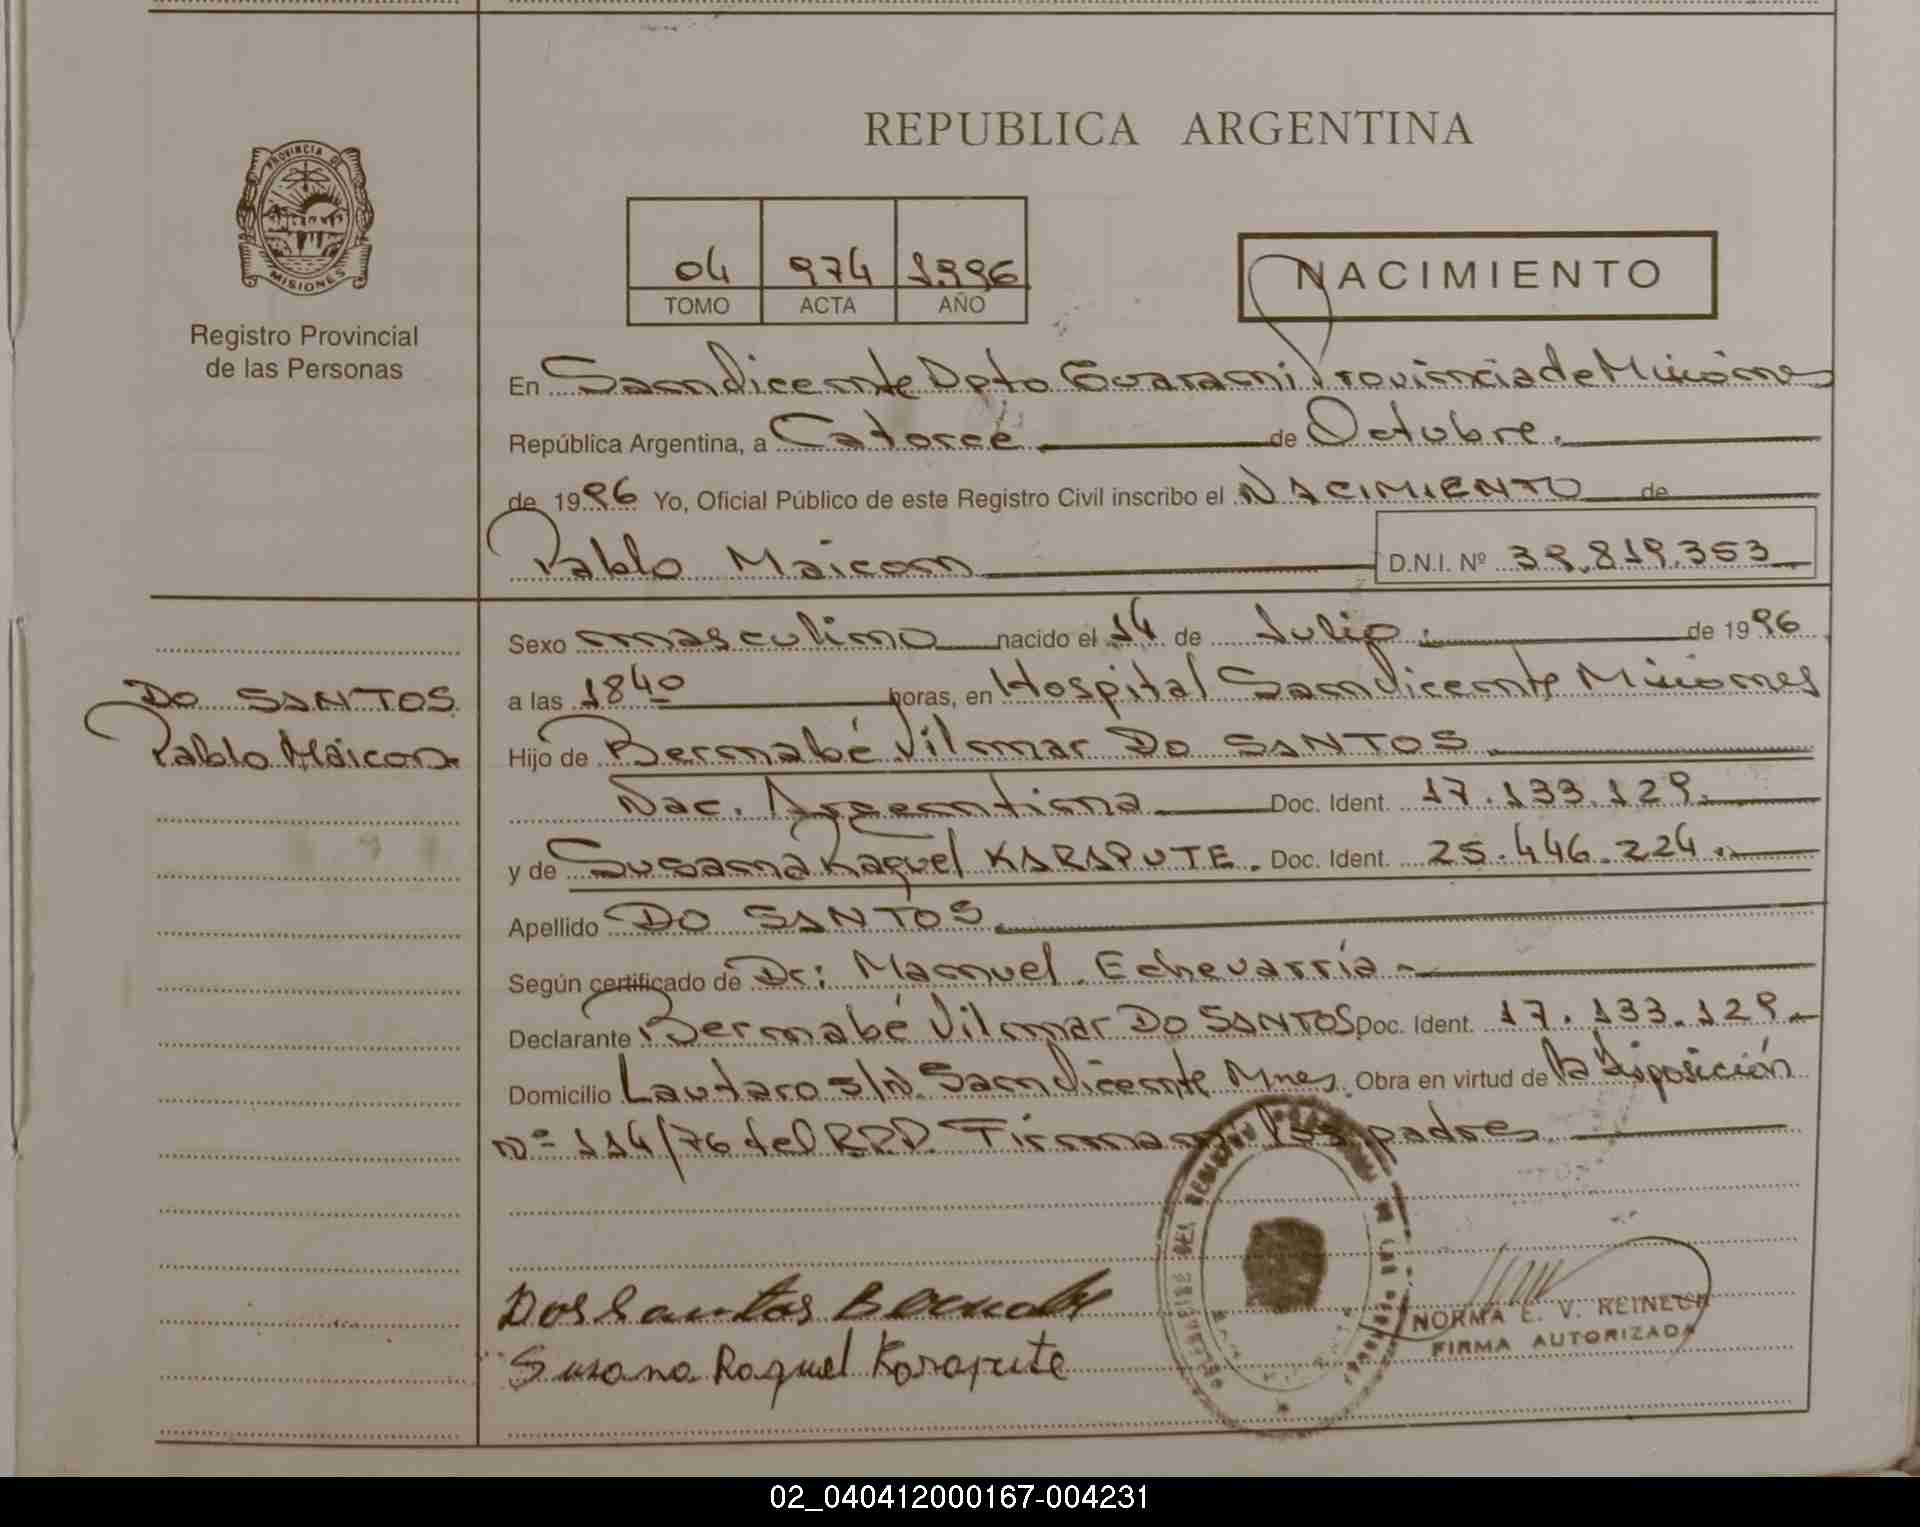 REPUBLICA ARGENTINA
PROVINCIA DE
MISIONES
Registro Provincial
de las Personas
04 974 1996
TOMO ACTA AÑO
NACIMIENTO
En San Vicente Dpto Guarani Provincia de Misiones
República Argentina, a Catorce de Octubre.
de 1996 Yo, Oficial Público de este Registro Civil inscribo el NACIMIENTO de
Pablo Maicon D.N.I. Nº 39.819.353
Sexo masculino nacido el 14 de Julio. de 1996
a las 18 40 horas, en Hospital San Vicente Misiones
DO SANTOS
Pablo Maicon
Hijo de Bernabé Vilmar DO SANTOS
Nac. Argentina Doc. Ident. 17.133.129.
y de Susana Raquel KARAPUTE. Doc. Ident. 25.446.224.
Apellido DO SANTOS.
Según certificado de Dr: Manuel Echevarría
Declarante Bernabé Vilmar DO SANTOS Doc. Ident. 17.133.129.
Domicilio Lautaro s/N. San Vicente Mnes. Obra en virtud de la disposición
Nº 114/76 del R.P.P. Firman los padres
Dos Santos Bernabe
Susana Raquel Karapute
NORMA E. V. REINECK
FIRMA AUTORIZADA
02_040412000167-004231